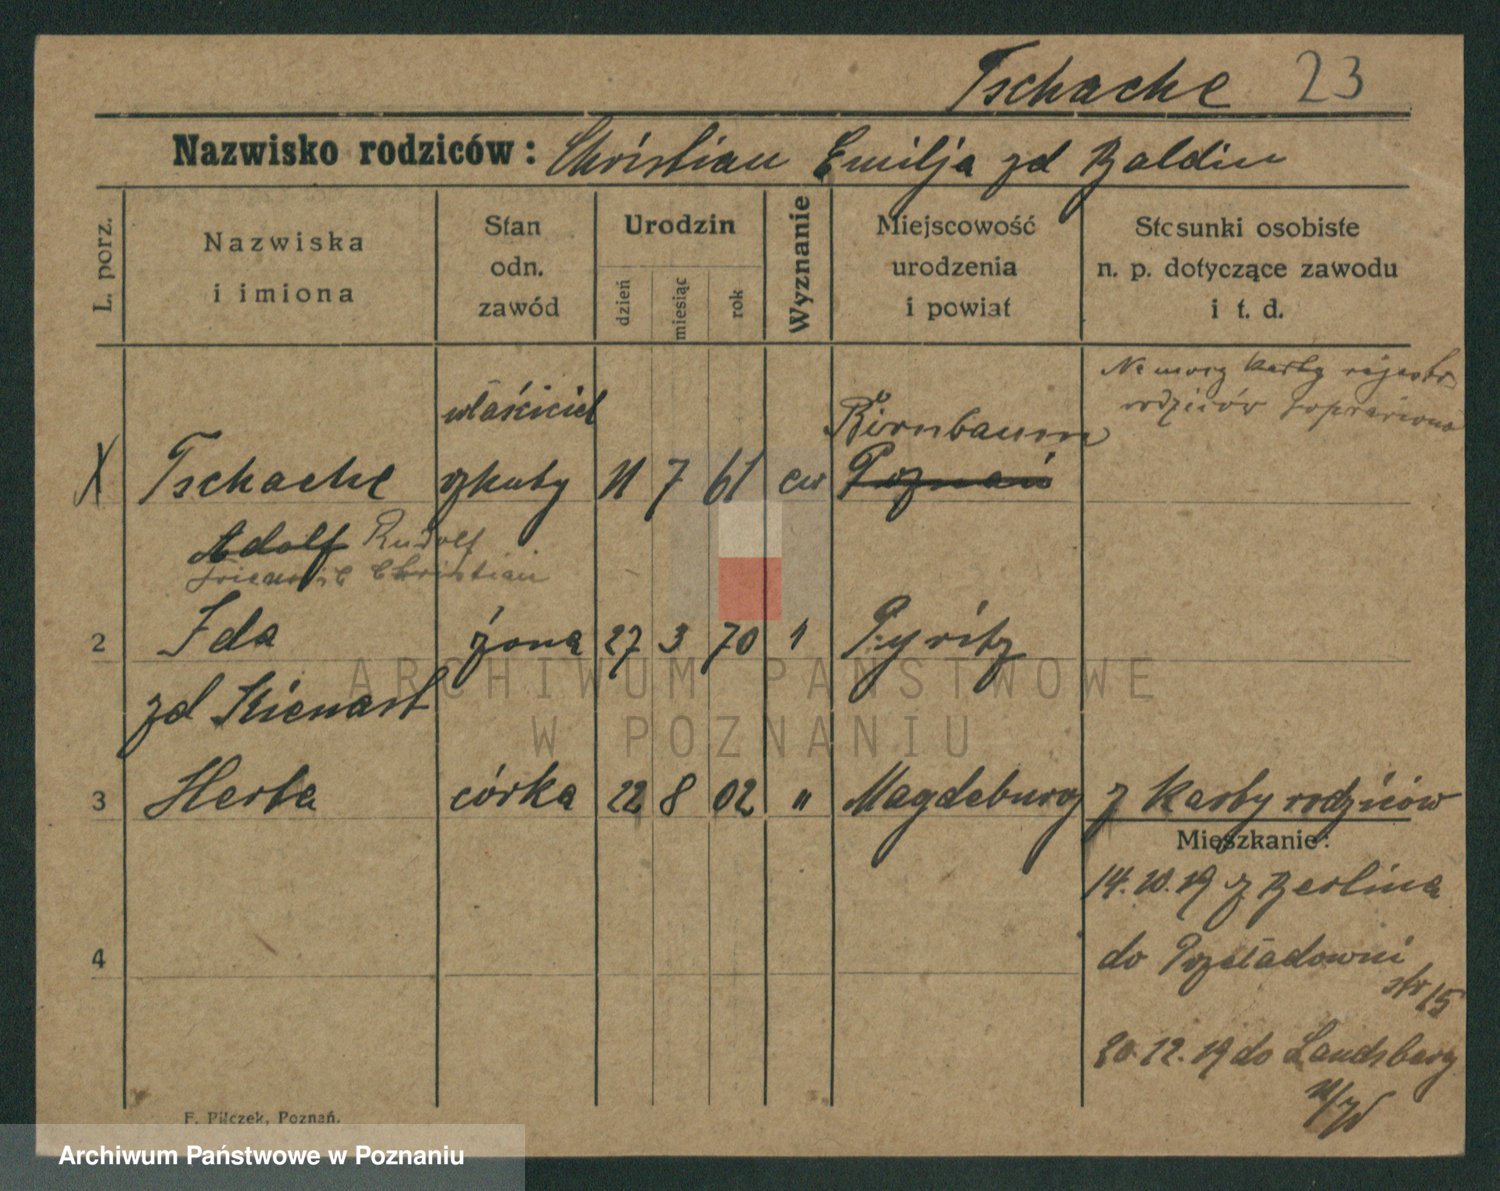 Tschache 23
Nazwisko rodziców: Christian Emilja zd Baldin
L. porz.
Nazwiska
i imiona
Stan
odn.
zawód
Urodzin
dzień
miesiąc
rok
Wyznanie
Miejscowość
urodzenia
i powiat
Stosunki osobiste
n. p. dotyczące zawodu
i t. d.
Na mocy karty rejestr
rodziców poprawiono
właściciel
Birnbaum
X Tschache szkuty 11 7 61 ew Poznań
Adolf Rudolf
Christian
2 Ida żona 27 3 70 " Pyritz
zd Kienast
3 Herta córka 22 8 02 " Magdeburg z karty rodziców
Mieszkanie:
14.10.19 z Berlina
4
do Przeładowni
str 15
20.12.19 do Landsberg
a/W
F. Pilczek, Poznań.
ARCHIWUM PAŃSTWOWE
W POZNANIU
Archiwum Państwowe w Poznaniu